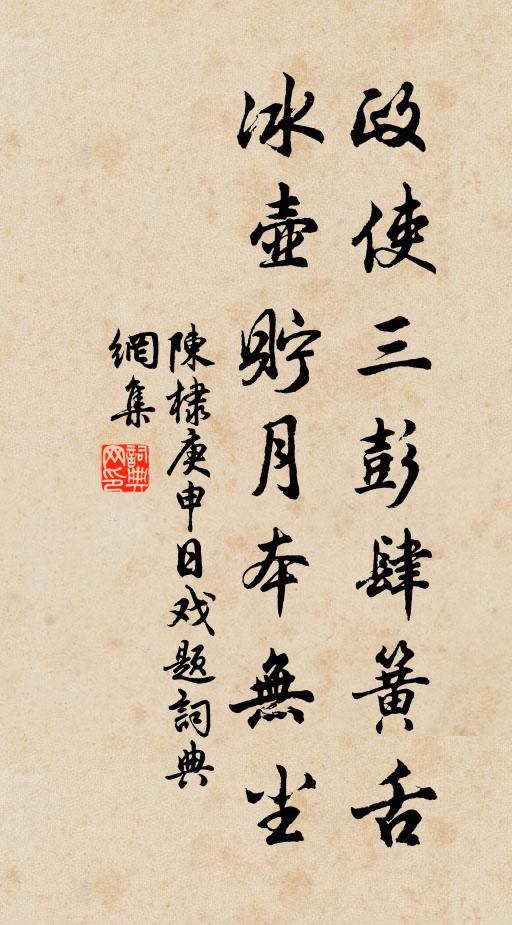 政使三彭肆簧舌
冰壺貯月本無尘
陳棣庚申日戏題詞典
網集
詞典
网印